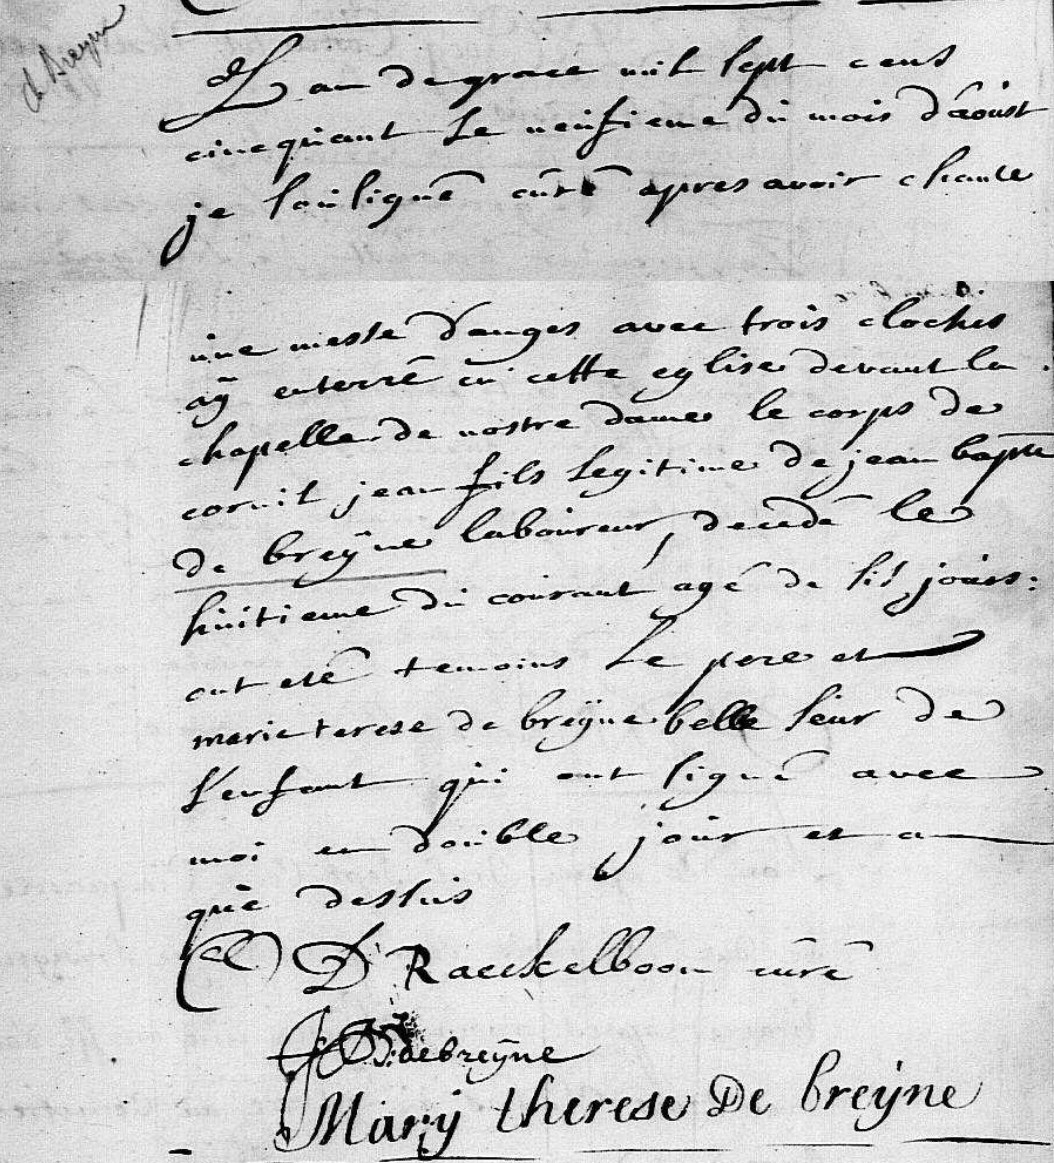 de Breyne
L'an de grace mil sept cens
cincquant le neufieme du mois d'aoust
je soussigné curé apres avoir chanté
une messe d'anges avec trois cloches
aÿ enterré en cette eglise devant la
chapelle de nostre dame le corps de
cornil jean fils legitime de jean bapte
de breÿne laboureur, decedé le
huitieme du courant agé de six jours:
ont eté temoins le pere et
marie terese de breÿne belle seur de
l'enfant qui ont signé avec
moi en double jour et a
que dessus
D Raeckelboom curé
J B: debreÿne
Marÿ therese De breÿne